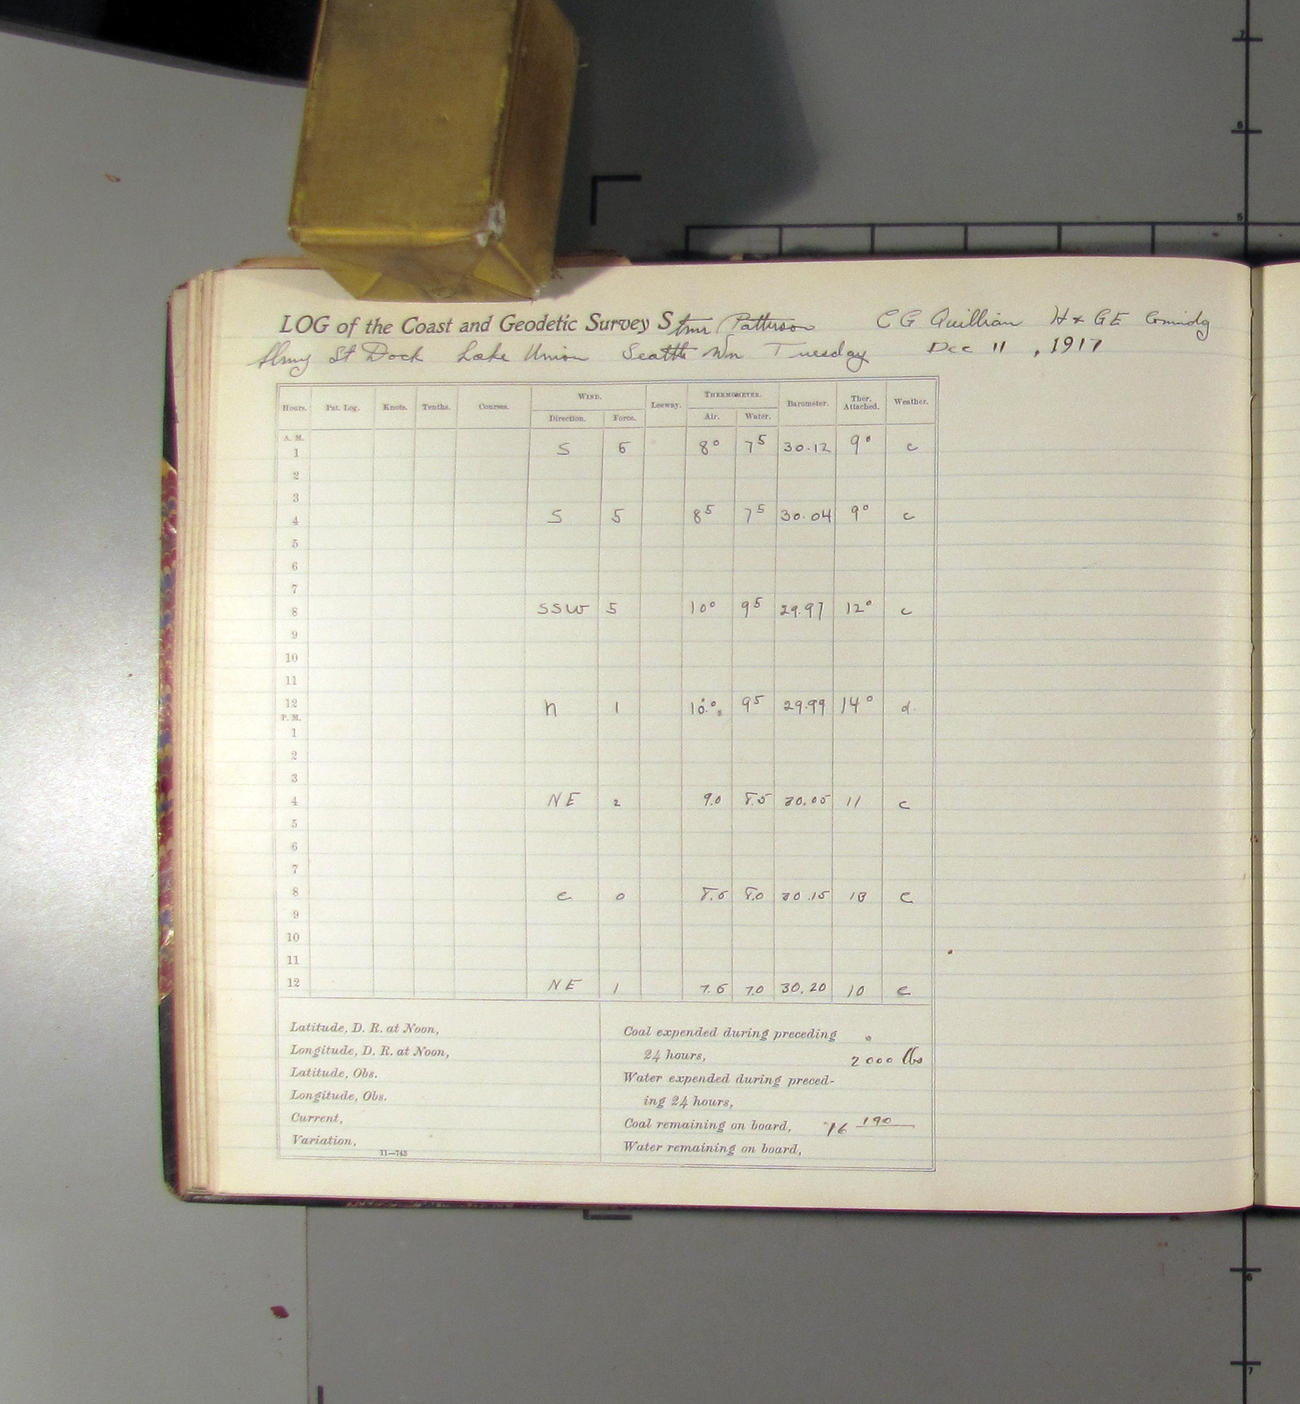 LOG of the Coast and Geodetic Survey Stmr Patterson C G Quillian H & G E Comndg
St Dock Lake Union Seattle Wn Tuesday Dec 11, 1917
WIND. THERMOMETER.
Hours. Pat. Log. Knots. Tenths. Courses. Direction. Force. Leeway. Air. Water. Barometer. Ther. Attached. Weather.
A. M.
1 S 5 8° 7 5 30.12 9° c
2
3
4 S 5 8 5 7 5 30.04 9° c
5
6
7
8 SSW 5 10° 9 5 29.97 12° c
9
10
11
12 N 1 10.° 9 5 29.99 14° d.
P. M.
1
2
3
4 NE 2 9.0 8.5 30.05 11 c
5
6
7
8 C 0 8.5 8.0 30.15 13 C
9
10
11
12 NE 1 7.5 7.0 30.20 10 C
Latitude, D. R. at Noon,
Longitude, D. R. at Noon,
Latitude, Obs.
Longitude, Obs.
Current,
Variation,
11—743
Coal expended during preceding
24 hours, 2000 lbs
Water expended during preced-
ing 24 hours,
Coal remaining on board, 16 190
Water remaining on board,
7
6
5
6
7